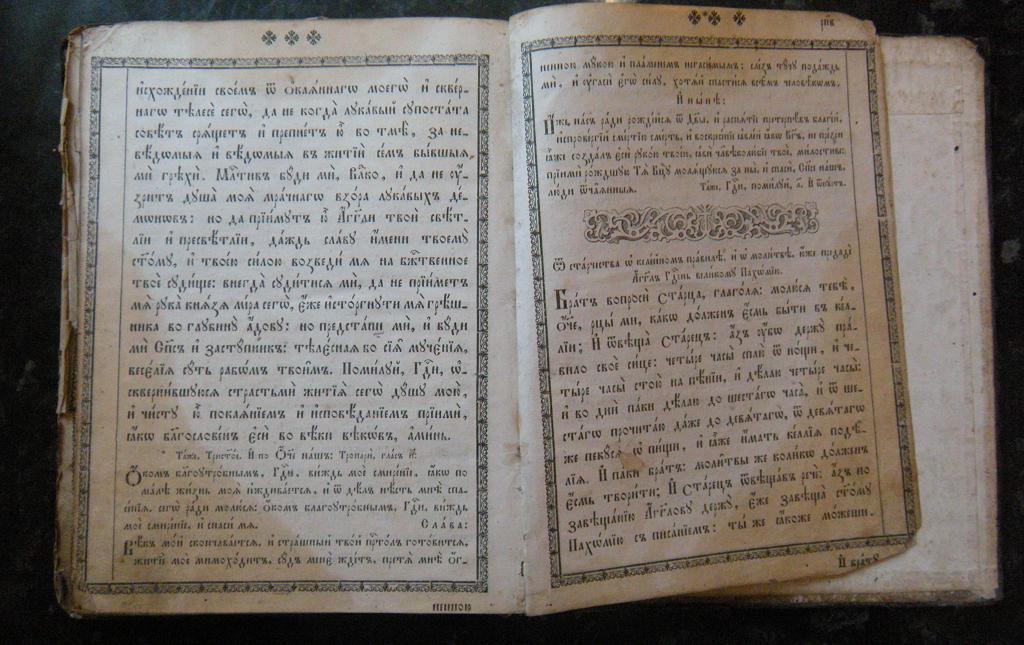 и҆схожде́нїи свое́мъ ѿ ѻ҆каѧ́ннагѡ моегѡ̀ и҆ скве́р-
нагѡ тѣлесѐ сегѡ̀, да не когда̀ лꙋка́вый сꙋпоста́та
совѣ́тъ срѧ́щетъ и҆ препне́тъ ю҆̀ во тмѣ̀, за не-
вѣ́домыѧ и҆ вѣ́домыѧ въ житїѝ се́мъ бы́вшыѧ
мѝ грѣхѝ. Мл҃тивъ бꙋ́ди мѝ, Влⷣко, и҆ да не ᲂу҆́-
зритъ дꙋша̀ моѧ̀ мра́чнагѡ взо́ра лꙋка́выхъ де́-
мѡнѡвъ: но да прїи́мꙋтъ ю҆̀ а҆́гг҃ли твоѝ свѣ́т-
лїи и҆ пресвѣ́тлїи, да́ждь сла́вꙋ и҆́мени твоемꙋ̀
ст҃о́мꙋ, и҆ твое́ю си́лою возведѝ мѧ̀ на бж҃е́ственное
твоѐ сꙋди́ще: внегда̀ сꙋди́тисѧ мѝ, да не прїи́метъ
мѧ̀ рꙋка̀ кнѧ́зѧ мі́ра сегѡ̀, є҆́же и҆сто́ргнꙋти мѧ̀ грѣ́ш-
ника во глꙋбинꙋ̀ а҆́довꙋ: но предста́ни мѝ, и҆ бꙋ́ди
мѝ сп҃съ и҆ застꙋ́пникъ: тѣлє́снаѧ бо сїѧ̑ мꙋчє́нїѧ,
весє́лїѧ сꙋ́ть рабѡ́мъ твои̑мъ. Поми́лꙋй, Гдⷭ҇и, ѡ҆-
скверни́вшꙋюсѧ страстьмѝ житїѧ̀ сегѡ̀ дꙋ́шꙋ мою̀,
и҆ чи́стꙋ ю҆̀ покаѧ́нїемъ и҆ и҆сповѣ́данїемъ прїимѝ,
ꙗ҆́кѡ бл҃гослове́нъ є҆сѝ во вѣ́ки вѣкѡ́въ, а҆ми́нь.
Та́же, Трист҃о́е. И҆ по Ѻ҆́ч҃е на́шъ: Тропарѝ, гла́съ и҃:
Ѻ҆́комъ бл҃гоꙋтро́бнымъ, Гдⷭ҇и, ви́ждь моѐ смире́нїе, ꙗ҆́кѡ по
ма́лѣ жи́знь моѧ̀ и҆ждива́етсѧ, и҆ ѿ дѣ́лъ нѣ́сть мнѣ̀ спа-
се́нїѧ, сегѡ̀ ра́ди молю́сѧ: ѻ҆́комъ благоꙋтро́бнымъ, Гдⷭ҇и, ви́ждь
моѐ смире́нїе, и҆ спаси́ мѧ. Сла́ва:
Вѣ́къ мо́й сконча́ваетсѧ, и҆ стра́шный тво́й прⷭ҇то́лъ гото́витсѧ,
житїѐ моѐ мимохо́дитъ, сꙋ́дъ менѐ жде́тъ, претѧ̀ мнѣ̀ ѻ҆́г-
ненною
рп҃в
ненною мꙋ́кою и҆ пла́менемъ негаси́мымъ: сле́зъ тꙋ́чꙋ пода́ждь
мѝ, и҆ ᲂу҆гасѝ є҆гѡ̀ си́лꙋ, хотѧ́й спасти́сѧ всѣ̑мъ человѣ́кѡмъ.
И҆ ны́нѣ:
И҆́же на́съ ра́ди рожде́йсѧ ѿ дв҃ы, и҆ распѧ́тїе претерпѣ́въ благі́й,
и҆спрове́ргїй сме́ртїю сме́рть, и҆ воскрⷭ҇нїе ꙗ҆вле́й ꙗ҆́кѡ бг҃ъ, не пре́зри
ꙗ҆̀же созда́лъ є҆сѝ рꙋко́ю твое́ю, ꙗ҆вѝ чл҃вѣколю́бїе твоѐ, ми́лостиве:
прїимѝ ро́ждшꙋю тѧ̀ бц҃ꙋ молѧ́щꙋюсѧ за ны̀, и҆ спасѝ, сп҃се на́шъ,
лю́ди ѿча̑ѧнныѧ. Та́же, Гдⷭ҇и, поми́лꙋй, м҃. И҆ ѿпꙋ́стъ.
Ѿ ста́рчества ѡ҆ келе́йномъ пра́вилѣ, и҆ ѡ҆ моли́твѣ, ю҆́же предадѐ
а҆́гг҃лъ гдⷭ҇ень вели́комꙋ Пахѡ́мїю.
Бра́тъ вопросѝ ста́рца, глаго́лѧ: молю́сѧ тебѣ̀,
ѻ҆́ч҃е, рцы́ ми, ка́кѡ до́лженъ є҆́смь бы́ти въ ке́л-
лїи; И҆ ѿвѣща̀ ста́рецъ: а҆́зъ ᲂу҆́бѡ держꙋ̀ пра́-
вило своѐ си́це: четы́ре часы̀ сплю̀ ѿ но́щи, и҆ че-
ты́ре часы̀ стою̀ на пѣ́нїи, и҆ дѣ́лаю четы́ре часы̀:
и҆ во днѝ па́ки дѣ́лаю до шеста́гѡ часа̀, и҆ ѿ ше-
ста́гѡ прочита́ю да́же до девѧ́тагѡ, ѿ девѧ́тагѡ
же пекꙋ́сѧ ѡ҆ пи́щи, и҆ ꙗ҆̀же и҆́мать ке́ллїа подѣ́-
лїѧ. И҆ па́ки бра́тъ: моли̑твы же коли́кѡ до́лженъ
є҆́смь твори́ти; И҆ ста́рецъ ѿвѣща́въ речѐ: а҆́зъ по
завѣща́нїю а҆́гг҃ловꙋ держꙋ̀, є҆́же завѣща̀ ст҃о́мꙋ
Пахѡ́мїю съ писа́нїемъ: ты́ же ꙗ҆́коже мо́жеши.
И҆ бра́тꙋ